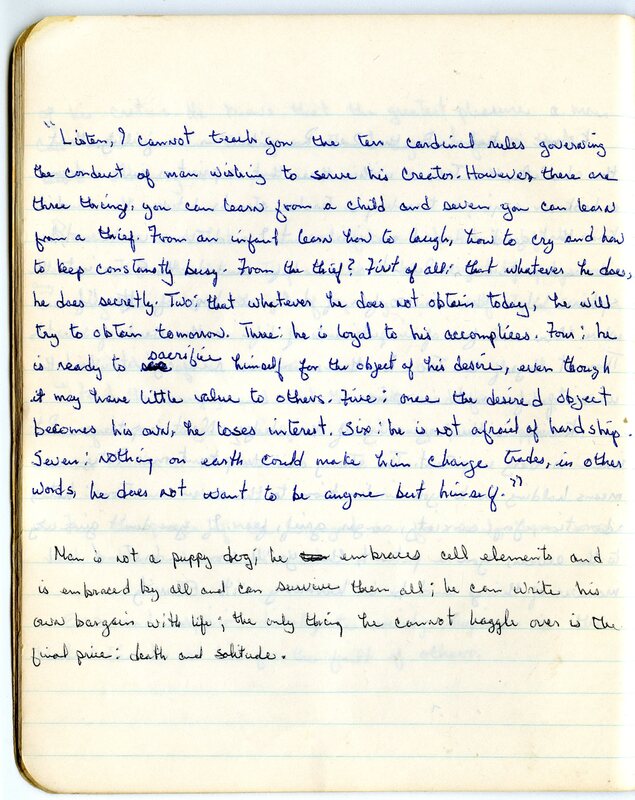 "Listen, I cannot teach you the ten cardinal rules governing
the conduct of man wishing to serve his creator. However there are
three things, you can learn from a child and seven you can learn
from a thief. From an infant learn how to laugh, how to cry and how
to keep constantly busy. From the thief? First of all: that whatever he does,
he does secretly. Two: that whatever he does not obtain today, he will
try to obtain tomorrow. Three: he is loyal to his accomplices. Four: he
is ready to sacrifice himself for the object of his desire, even though
it may have little value to others. Five: once the desired object
becomes his own, he loses interest. Six: he is not afraid of hardship.
Seven: nothing on earth could make him change trades, in other
words, he does not want to be anyone but himself."
Man is not a puppy dog; he embraces cell elements and
is embraced by all and can survive them all; he can write his
own bargain with life; the only thing he cannot haggle over is the
final price: death and solitude.